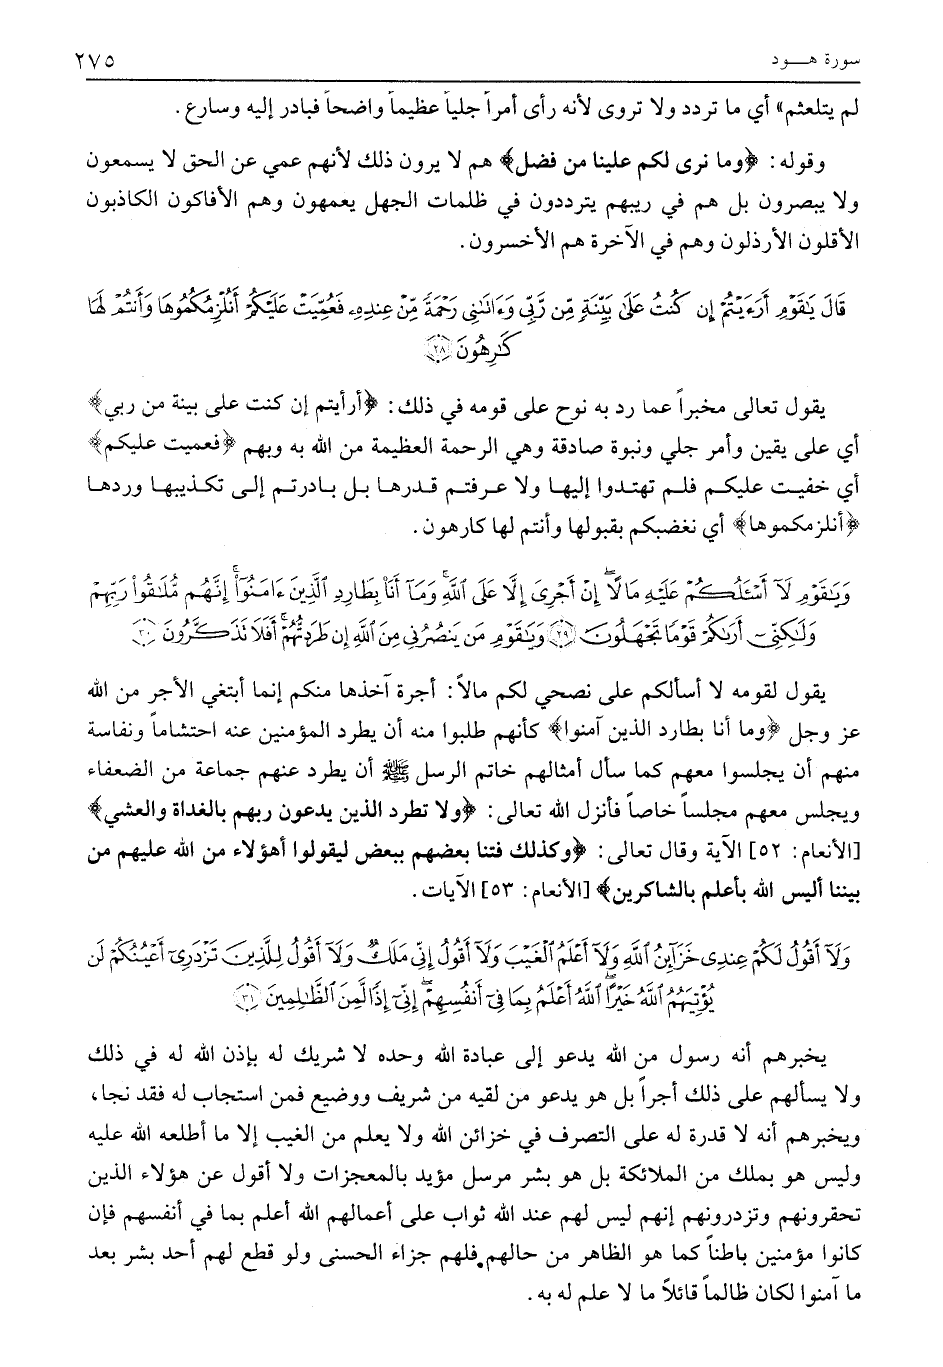 سورة هـــود ٢٧٥
لم يتلعثم» أي ما تردد ولا تروى لأنه رأى أمراً جلياً عظيماً واضحاً فبادر إليه وسارع.
وقوله: ﴿وما نرى لكم علينا من فضل﴾ هم لا يرون ذلك لأنهم عمي عن الحق لا يسمعون
ولا يبصرون بل هم في ريبهم يترددون في ظلمات الجهل يعمهون وهم الأفاكون الكاذبون
الأقلون الأرذلون وهم في الآخرة هم الأخسرون.
قَالَ يَٰقَوْمِ أَرَءَيْتُمْ إِن كُنتُ عَلَىٰ بَيِّنَةٍ مِّن رَّبِّى وَءَاتَىٰنِى رَحْمَةً مِّنْ عِندِهِۦ فَعُمِّيَتْ عَلَيْكُمْ أَنُلْزِمُكُمُوهَا وَأَنتُمْ لَهَا
كَٰرِهُونَ ﴿٢٨﴾
يقول تعالى مخبراً عما رد به نوح على قومه في ذلك: ﴿أرأيتم إن كنت على بينة من ربي﴾
أي على يقين وأمر جلي ونبوة صادقة وهي الرحمة العظيمة من الله به وبهم ﴿فعميت عليكم﴾
أي خفيت عليكم فلم تهتدوا إليها ولا عرفتم قدرها بل بادرتم إلى تكذيبها وردها
﴿أنلزمكموها﴾ أي نغضبكم بقبولها وأنتم لها كارهون.
وَيَٰقَوْمِ لَآ أَسْـَٔلُكُمْ عَلَيْهِ مَالًا ۖ إِنْ أَجْرِىَ إِلَّا عَلَى ٱللَّهِ ۚ وَمَآ أَنَا۠ بِطَارِدِ ٱلَّذِينَ ءَامَنُوٓا۟ ۚ إِنَّهُم مُّلَٰقُوا۟ رَبِّهِمْ
وَلَٰكِنِّىٓ أَرَىٰكُمْ قَوْمًا تَجْهَلُونَ ﴿٢٩﴾ وَيَٰقَوْمِ مَن يَنصُرُنِى مِنَ ٱللَّهِ إِن طَرَدتُّهُمْ ۚ أَفَلَا تَذَكَّرُونَ ﴿٣٠﴾
يقول لقومه لا أسألكم على نصحي لكم مالاً: أجرة آخذها منكم إنما أبتغي الأجر من الله
عز وجل ﴿وما أنا بطارد الذين آمنوا﴾ كأنهم طلبوا منه أن يطرد المؤمنين عنه احتشاماً ونفاسة
منهم أن يجلسوا معهم كما سأل أمثالهم خاتم الرسل ﷺ أن يطرد عنهم جماعة من الضعفاء
ويجلس معهم مجلساً خاصاً فأنزل الله تعالى: ﴿ولا تطرد الذين يدعون ربهم بالغداة والعشي﴾
[الأنعام: ٥٢] الآية وقال تعالى: ﴿وكذلك فتنا بعضهم ببعض ليقولوا أهؤلاء من الله عليهم من
بيننا أليس الله بأعلم بالشاكرين﴾ [الأنعام: ٥٣] الآيات.
وَلَآ أَقُولُ لَكُمْ عِندِى خَزَآئِنُ ٱللَّهِ وَلَآ أَعْلَمُ ٱلْغَيْبَ وَلَآ أَقُولُ إِنِّى مَلَكٌ وَلَآ أَقُولُ لِلَّذِينَ تَزْدَرِىٓ أَعْيُنُكُمْ لَن
يُؤْتِيَهُمُ ٱللَّهُ خَيْرًا ۖ ٱللَّهُ أَعْلَمُ بِمَا فِىٓ أَنفُسِهِمْ ۖ إِنِّىٓ إِذًا لَّمِنَ ٱلظَّٰلِمِينَ ﴿٣١﴾
يخبرهم أنه رسول من الله يدعو إلى عبادة الله وحده لا شريك له بإذن الله له في ذلك
ولا يسألهم على ذلك أجراً بل هو يدعو من لقيه من شريف ووضيع فمن استجاب له فقد نجا،
ويخبرهم أنه لا قدرة له على التصرف في خزائن الله ولا يعلم من الغيب إلا ما أطلعه الله عليه
وليس هو بملك من الملائكة بل هو بشر مرسل مؤيد بالمعجزات ولا أقول عن هؤلاء الذين
تحقرونهم وتزدرونهم إنهم ليس لهم عند الله ثواب على أعمالهم الله أعلم بما في أنفسهم فإن
كانوا مؤمنين باطناً كما هو الظاهر من حالهم فلهم جزاء الحسنى ولو قطع لهم أحد بشر بعد
ما آمنوا لكان ظالماً قائلاً ما لا علم له به.